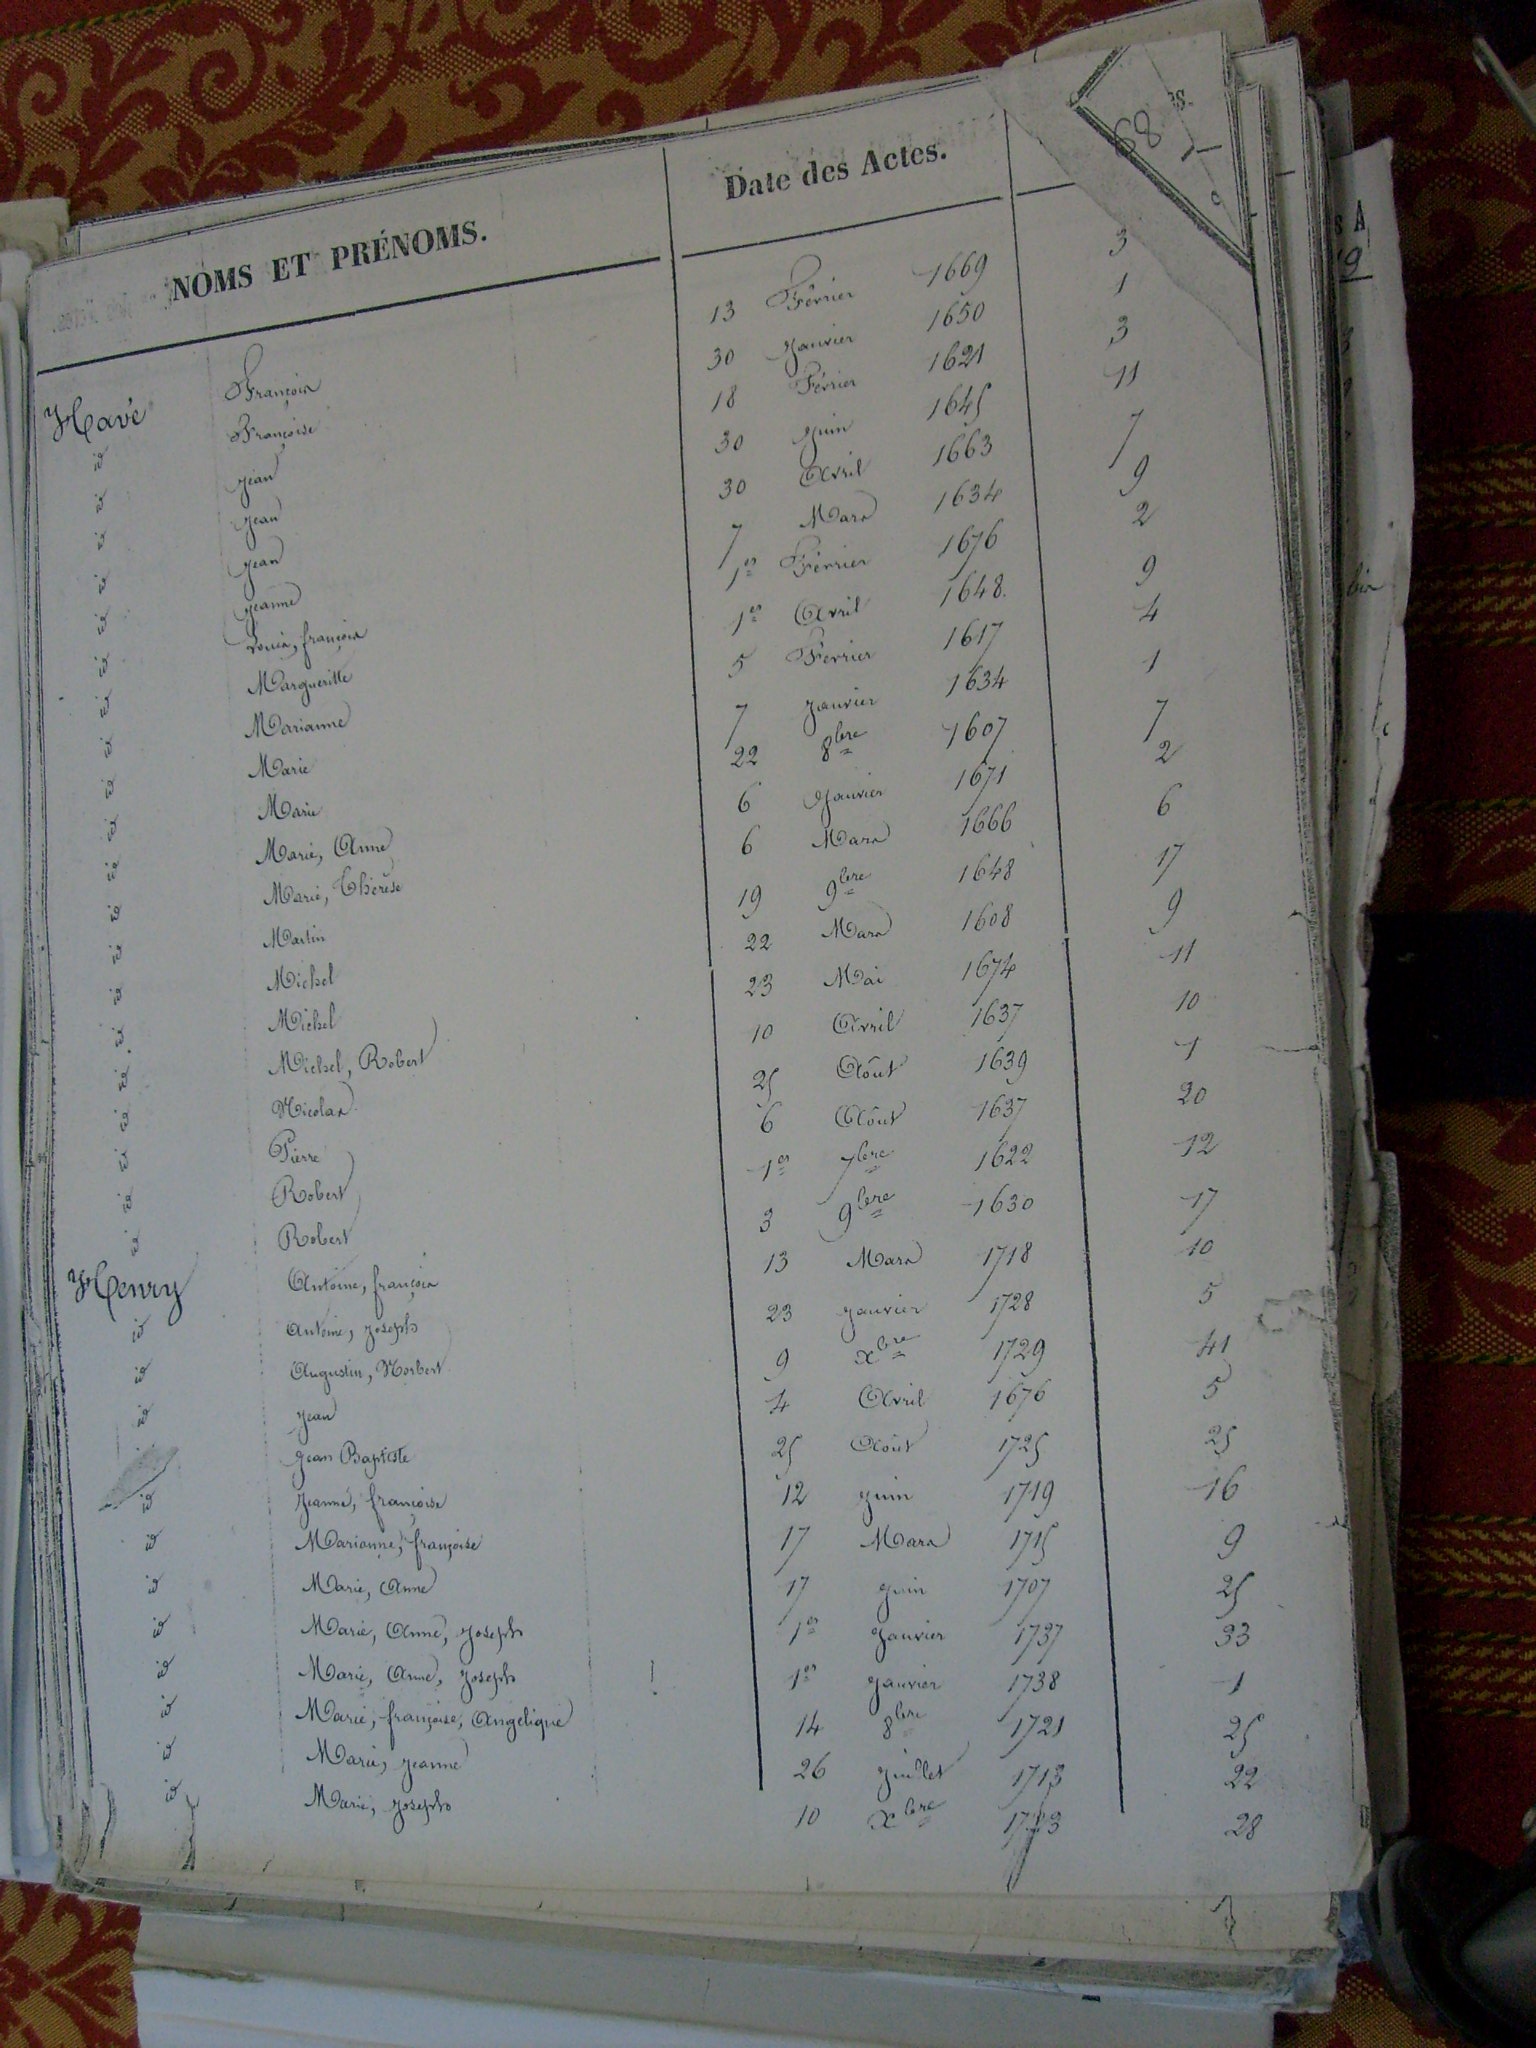 68
s.
NOMS ET PRÉNOMS. Date des Actes.
Havé François 13 Février 1669 3
id Françoise 30 Janvier 1650 1
id Jean 18 Février 1621 3
id Jean 30 Juin 1645 11
id Jean 30 Avril 1663 7
id Jeanne 7 Mars 1634 9
id Louis, françois 1er Février 1676 2
id Margueritte 1er Avril 1648. 9
id Marianne 5 Fevrier 1617 4
id Marie 7 Janvier 1634 1
id Marie 22 8bre 1607 7
id Marie, Anne 6 Janvier 1671 2
id Marie, Thérèse 6 Mars 1666 6
id Martin 19 9bre 1648 17
id Michel 22 Mars 1608 9
id Michel 23 Mai 1674 11
id Michel, Robert 10 Avril 1637 10
id Nicolas 25 Août 1639 1
id Pierre 6 Août 1637 20
id Robert 1er 7bre 1622 12
id Robert 3 9bre 1630 17
Henry Antoine, françois 13 Mars 1718 10
id Antoine, Joseph 23 Janvier 1728 5
id Augustin, Norbert 9 xbre 1729 41
id Jean 4 Avril 1676 5
Jean Baptiste 25 Août 1725 25
id Jeanne, françoise 12 Juin 1719 16
id Marianne, françoise 17 Mars 1715 9
id Marie, Anne 17 Juin 1707 25
id Marie, Anne, Joseph 1er Janvier 1737 33
id Marie, Anne, Joseph 1er Janvier 1738 1
id Marie, françoise, Angelique 14 8bre 1721 25
id Marie, Jeanne 26 Juillet 1713 22
id Marie, Joseph 10 xbre 1723 28